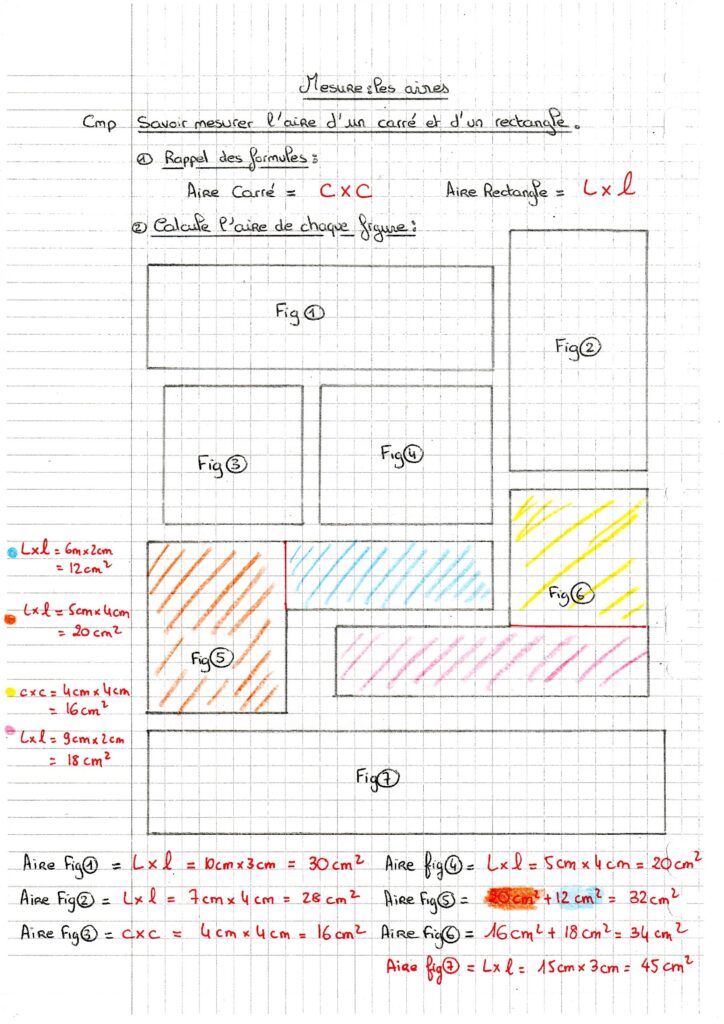 Mesure : les aires
Cmp Savoir mesurer l'aire d'un carré et d'un rectangle.
① Rappel des formules :
Aire Carré = C x C Aire Rectangle = L x l
② Calcule l'aire de chaque figure :
Fig ①
Fig ②
Fig ③
Fig ④
L x l = 6m x 2cm
= 12 cm²
Fig ⑥
L x l = 5cm x 4cm
= 20 cm²
Fig ⑤
c x c = 4cm x 4cm
= 16 cm²
L x l = 9cm x 2cm
= 18 cm²
Fig ⑦
Aire Fig ① = L x l = 10cm x 3cm = 30 cm² Aire fig ④ = L x l = 5cm x 4cm = 20 cm²
Aire Fig ② = L x l = 7cm x 4cm = 28 cm² Aire Fig ⑤ = 20 cm² + 12 cm² = 32 cm²
Aire Fig ③ = c x c = 4cm x 4cm = 16 cm² Aire Fig ⑥ = 16 cm² + 18 cm² = 34 cm²
Aire fig ⑦ = L x l = 15cm x 3cm = 45 cm²